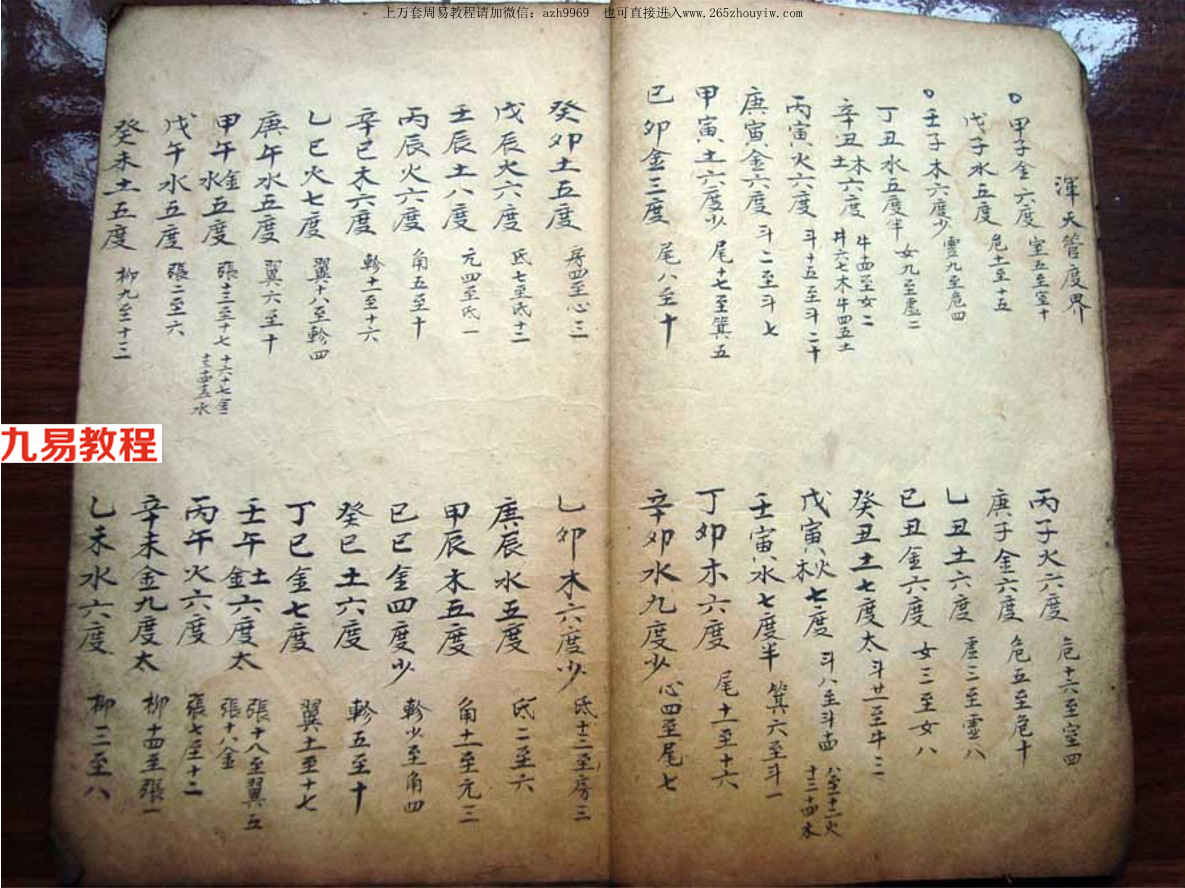 上万套周易教程请加微信：azh9969 也可直接进入www.265zhouyiw.com
渾天管度界
甲子金六度 室五至室十
丙子火六度 危十六至室四
戊子水五度 危十一至十五
庚子金六度 危五至危十
壬子木六度少 虛九至危四
乙丑土六度 虛三至虛八
丁丑水五度半 女九至虛二
己丑金六度 女三至女八
辛丑木土六度 牛四至女二 牛六七木牛四五土
癸丑土七度太 斗廿一至牛三
丙寅火六度 斗十五至斗二十
戊寅火木七度 斗八至斗十四 八至十二火 十三十四木
庚寅金六度 斗二至斗七
壬寅水七度半 箕六至斗一
甲寅土六度少 尾十七至箕五
丁卯木六度 尾十一至十六
己卯金三度 尾八至十
辛卯水九度少 心四至尾七
癸卯土五度 房四至心三
乙卯木六度少 氐十二至房三
戊辰火六度 氐七至氐十二
庚辰水五度 氐二至六
壬辰土八度 亢四至氐一
甲辰木五度 角十一至亢三
丙辰火六度 角五至十
己巳金四度少 軫少至角四
辛巳木六度 軫十一至十六
癸巳土六度 軫五至十
乙巳火七度 翼十八至軫四
丁巳金七度 翼十一至十七
庚午水五度 翼六至十
壬午土金六度太 張十八至翼五 張十八金
甲午金水五度 張十三至十七 十六十七金
丙午火六度 張七至十二
戊午水五度 張二至六
辛未金九度太 柳十四至張一
癸未土五度 柳九至十三
乙未水六度 柳三至八
九易教程